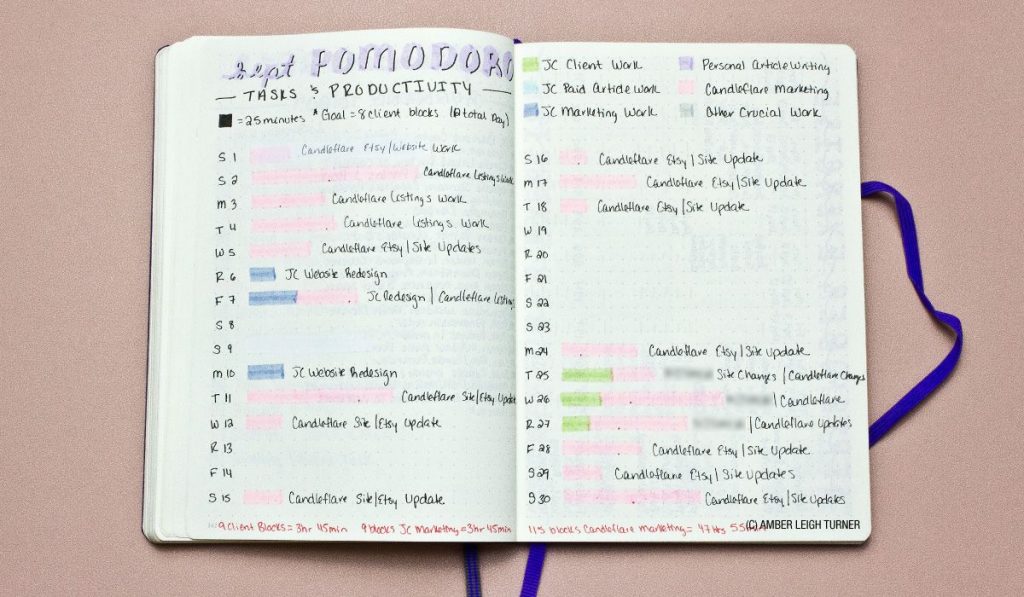 Sept POMODORO
TASKS & PRODUCTIVITY
= 25 minutes * Goal = 8 client blocks (12 total Day)
S 1 Candleflare Etsy/Website Work
S 2 Candleflare Listings Work
M 3 Candleflare Listings Work
T 4 Candleflare Listings Work
W 5 Candleflare Etsy|Site Updates
R 6 JC Website Redesign
F 7 JC Redesign | Candleflare Listings
S 8
S 9
M 10 JC Website Redesign
T 11 Candleflare Site/Etsy Update
W 12 Candleflare Site/Etsy Update
R 13
F 14
S 15 Candleflare Site/Etsy Update
9 Client Blocks = 3hr 45min 9 blocks JC Marketing = 3hr 45min
JC Client Work Personal Article Writing
JC Paid Article Work Candleflare Marketing
JC Marketing Work Other Crucial Work
S 16 Candleflare Etsy|Site Update
M 17 Candleflare Etsy|Site Update
T 18 Candleflare Etsy|Site Update
W 19
R 20
F 21
S 22
S 23
M 24 Candleflare Etsy|Site Update
T 25 Site Changes / Candleflare Changes
W 26 | Candleflare
R 27 | Candleflare Updates
F 28 Candleflare Etsy|Site Update
S 29 Candleflare Etsy | Site Updates
S 30 Candleflare Etsy|Site Updates
115 blocks Candleflare marketing = 47 Hrs
(C) AMBER LEIGH TURNER